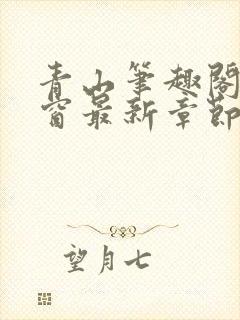 青山笔趣阁
窗最新章節
望月七